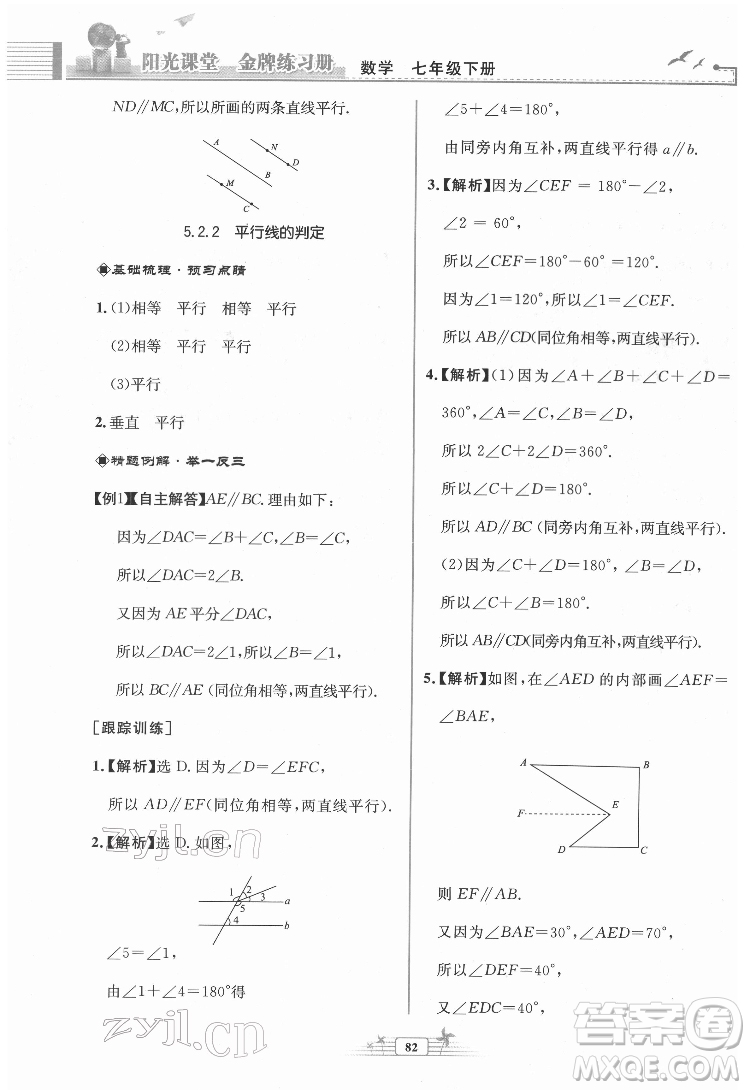 阳光课堂 金牌练习册 数学 七年级下册
ND∥MC,所以所画的两条直线平行.
A N
B D
M
C
5.2.2 平行线的判定
基础梳理·预习点睛
1.(1)相等 平行 相等 平行
(2)相等 平行 平行
(3)平行
2.垂直 平行
精题例解·举一反三
【例1】【自主解答】AE∥BC.理由如下:
因为∠DAC=∠B+∠C,∠B=∠C,
所以∠DAC=2∠B.
又因为AE平分∠DAC,
所以∠DAC=2∠1,所以∠B=∠1,
所以BC∥AE(同位角相等,两直线平行).
[跟踪训练]
1.【解析】选D.因为∠D=∠EFC,
所以AD∥EF(同位角相等,两直线平行).
2.【解析】选D.如图,
1 2
3 a
5
4 b
∠5=∠1,
由∠1+∠4=180°得
∠5+∠4=180°,
由同旁内角互补,两直线平行得a∥b.
3.【解析】因为∠CEF=180°-∠2,
∠2=60°,
所以∠CEF=180°-60°=120°.
因为∠1=120°,所以∠1=∠CEF.
所以AB∥CD(同位角相等,两直线平行).
4.【解析】(1)因为∠A+∠B+∠C+∠D=
360°,∠A=∠C,∠B=∠D,
所以2∠C+2∠D=360°,
所以∠C+∠D=180°,
所以AD∥BC(同旁内角互补,两直线平行).
(2)因为∠C+∠D=180°,∠B=∠D,
所以∠C+∠B=180°,
所以AB∥CD(同旁内角互补,两直线平行).
5.【解析】如图,在∠AED的内部画∠AEF=
∠BAE,
A B
F E
D C
则EF∥AB.
又因为∠BAE=30°,∠AED=70°,
所以∠DEF=40°,
又∠EDC=40°,
82
zyjl.cn
zyjl.cn
答案圈
MXQE.COM